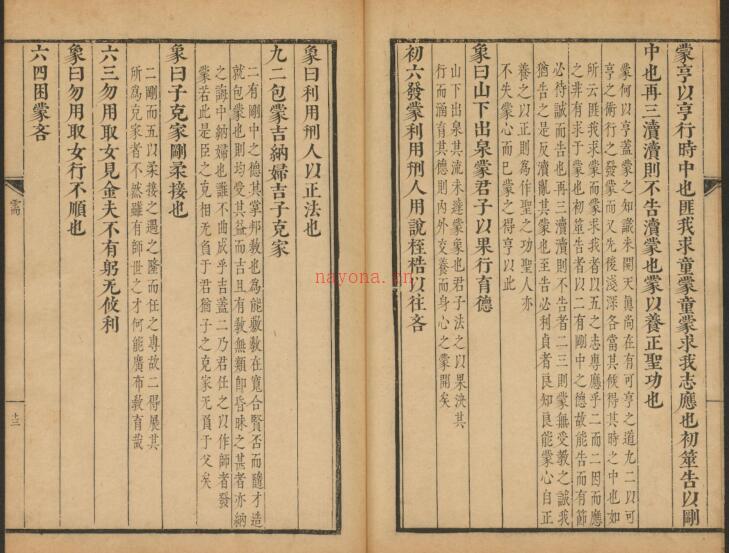 蒙亨以亨行時中也匪我求童蒙童蒙求我志應也初筮告以剛
中也再三瀆瀆則不告瀆蒙也蒙以養正聖功也
蒙何以亨蓋蒙之知識未開天真尚在有可亨之道九二以可
亨之術行之發蒙而又先後淺深各當其候得其時之中也如
所云匪我求蒙而蒙求我者以五之志專應乎二而二因而應
之非有求于蒙也初筮告者以二有剛中之德故能告而有節
必待誠而告也再三瀆瀆則不告者二三則蒙無受教之誠我
猶告之是反瀆亂其蒙也至告必利貞者良知良能蒙心自正
養之以正則為作聖之功聖人亦
不失蒙心而已蒙之得亨以此
象曰山下出泉蒙君子以果行育德
山下出泉其流未達蒙象也君子法之以果決其
行而涵育其德則內外交養而身心之蒙開矣
初六發蒙利用刑人用說桎梏以往吝
象曰利用刑人以正法也
九二包蒙吉納婦吉子克家
二有剛中之德其掌邦教也為能敷教在寬合賢否而隨才造
就包蒙也則均受其益而吉且有教無類即昏昧之甚者亦納
之誨中納婦也雖不曲成乎吉蓋二乃君任之以作師者發
蒙若此是臣之克相无負于君猶子之克家无負于父矣
象曰子克家剛柔接也
二剛而五以柔接之遇之隆而任之專故二得展其
所為克家者不然雖有師世之才何能廣布教育哉
六三勿用取女見金夫不有躬无攸利
象曰勿用取女行不順也
六四困蒙吝
需
十三
nayona.cn